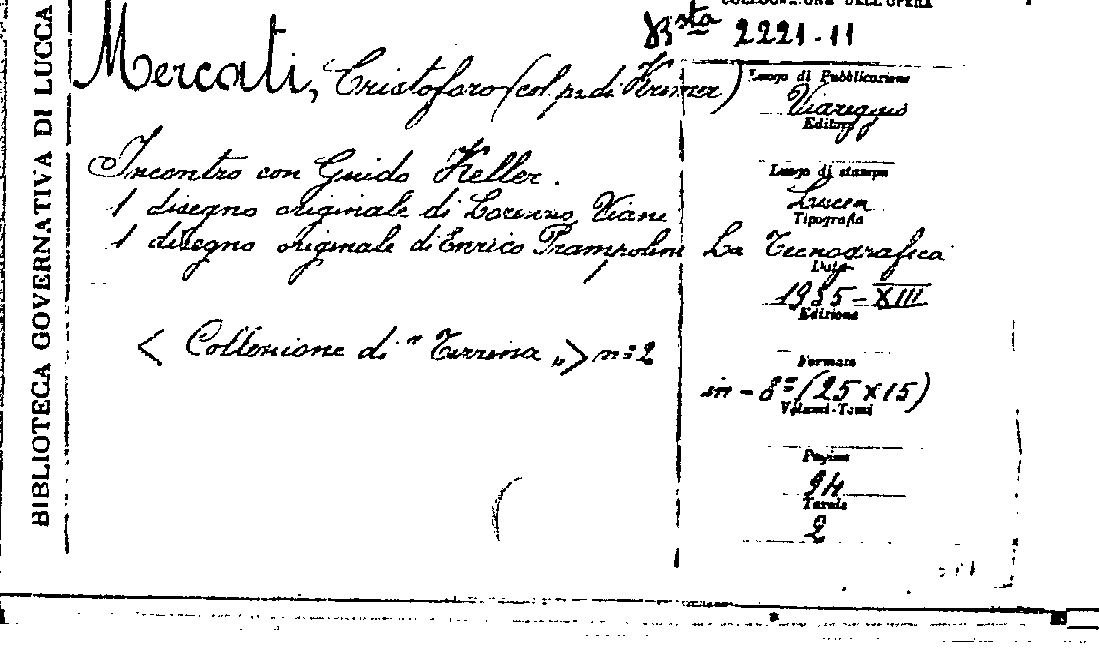 BIBLIOTECA GOVERNATIVA DI LUCCA
COLLOCAZIONE DELL'OPERA
Bsta 2221-11
Mercati, Cristoforo (col ps. di Krimer)
Incontro con Guido Keller.
1 disegno originale di Lorenzo Viani
1 disegno originale di Enrico Prampolini
< Collezione di "Terrina „> n=2
Luogo di Pubblicazione
Viareggio
Editore
Luogo di stampa
Lucca
Tipografia
La Tecnografica
Data
1935-XIII
Edizione
Formato
in-8=(25x15)
Volumi-Tomi
Pagine
94
Tavole
2